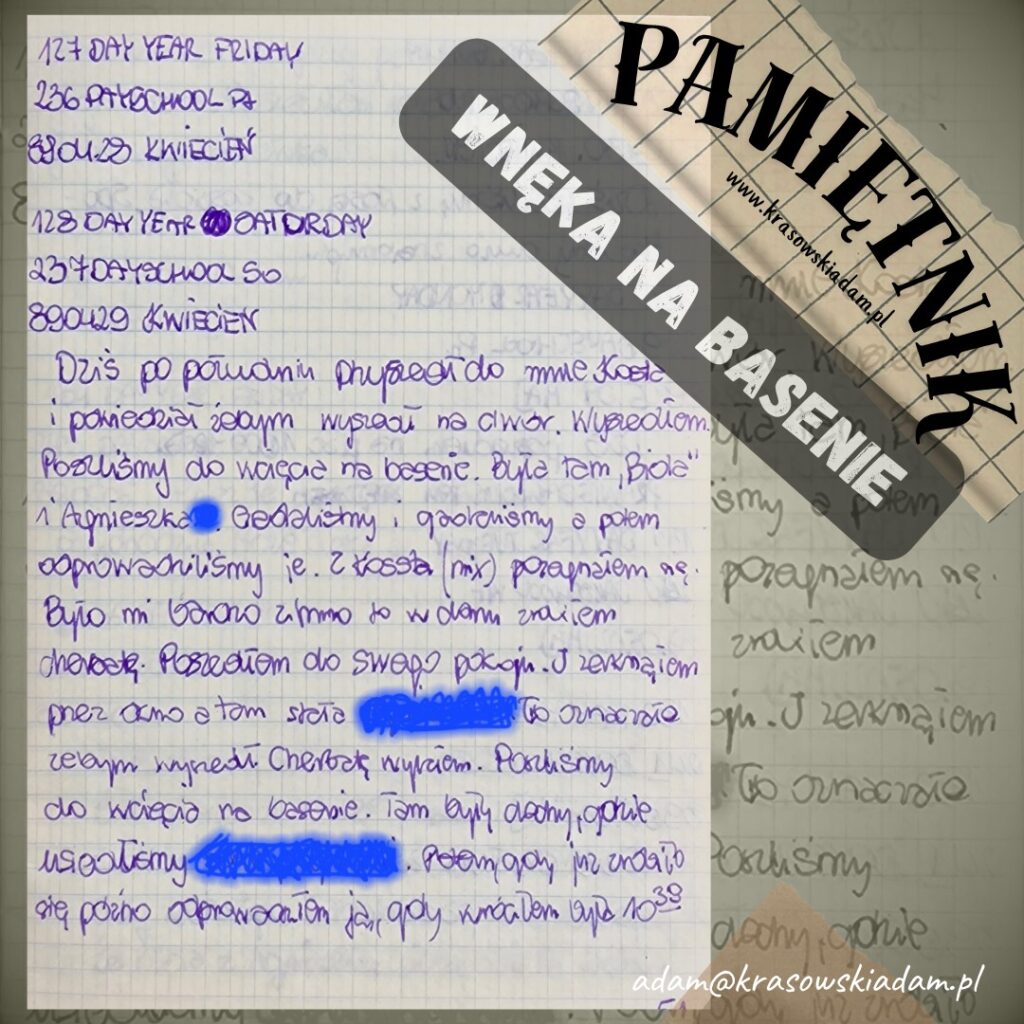 127 DAY YEAR FRIDAY
236 DAYSCHOOL PA
890428 KWIECIEŃ
128 DAY YEAR SATURDAY
237 DAYSCHOOL SO
890429 KWIECIEŃ
Dziś po południu przyszedł do mnie Kosta
i powiedział żebym wyszedł na dwór. Wyszedłem.
Poszliśmy do wcięcia na basenie. Była tam „Biola"
i Agnieszka. Siedzieliśmy i gadaliśmy a potem
odprowadziliśmy je. Z Kostą (nix) pożegnałem się.
Było mi bardzo zimno to w domu zrobiłem
cherbatę. Poszedłem do swego pokoju. I zerknąłem
przez okno a tam stała To oznaczało
żebym wyszedł Cherbatę wypiłem. Poszliśmy
do wcięcia na basenie. Tam były dechy, gdzie
usiedliśmy . Potem gdy już zrobiło
się późno odprowadziłem ją, gdy wróciłem była 10 30
PAMIĘTNIK
www.krasowskiadam.pl
WNĘKA NA BASENIE
pożegnałem się.
zrobiłem
I zerknąłem
To oznaczało
Poszliśmy
dechy, gdzie
adam@krasowskiadam.pl
51